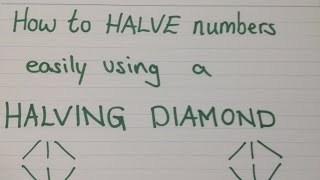 How to HALVE numbers
easily using a
HALVING DIAMOND